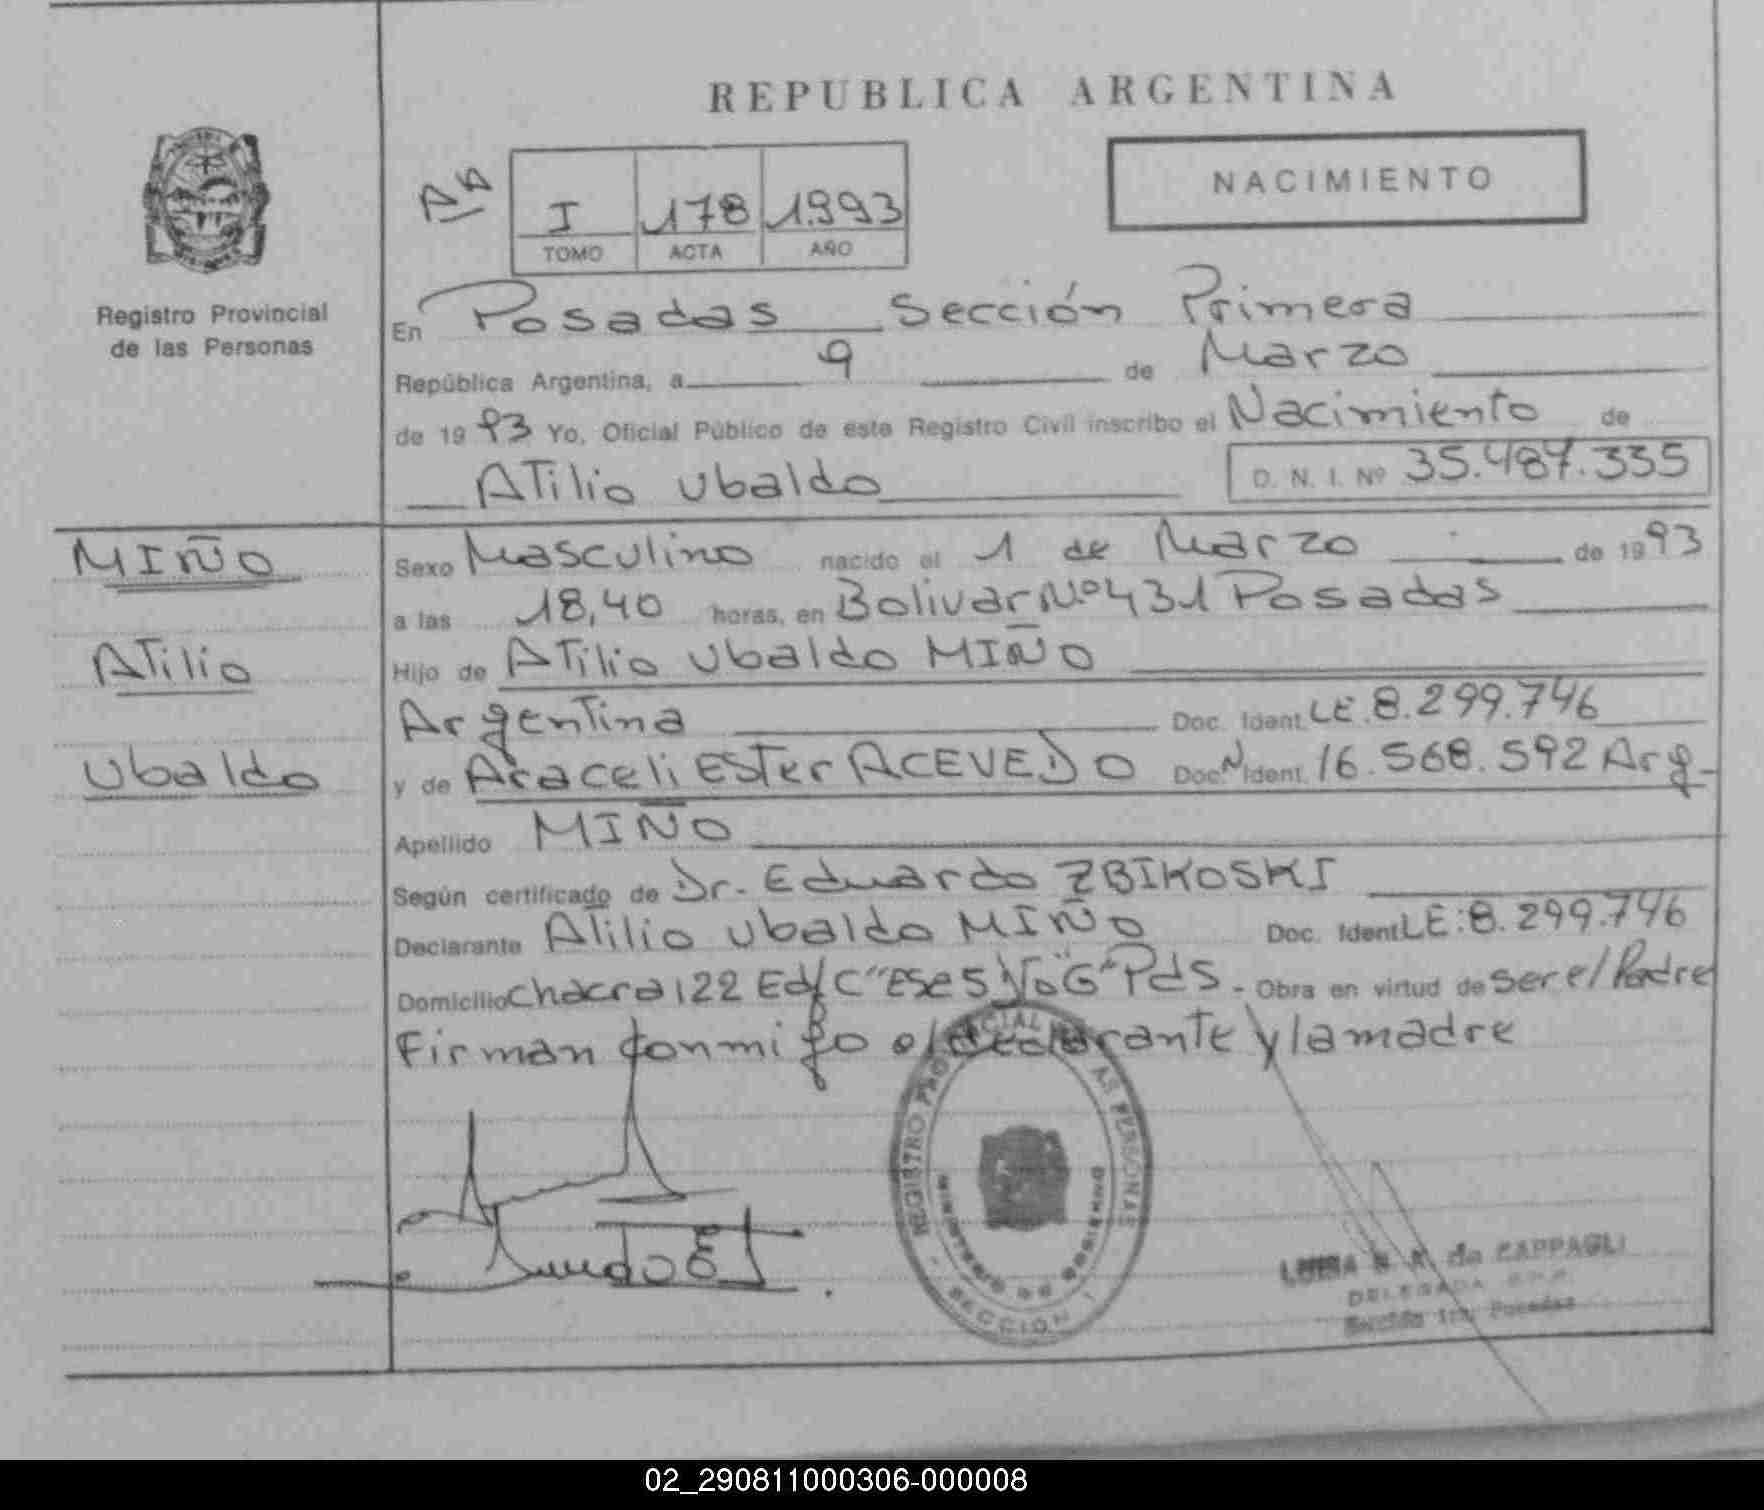 REPUBLICA ARGENTINA
NACIMIENTO
I 178 1993
TOMO ACTA AÑO
Registro Provincial
de las Personas
En Posadas Sección Primera
República Argentina, a 9 de Marzo
de 1993 Yo, Oficial Público de este Registro Civil inscribo el Nacimiento de
Atilio Ubaldo D. N. I. Nº 35.487.335
MIÑO
Atilio
Ubaldo
Sexo Masculino nacido el 1 de Marzo de 1993
a las 18,40 horas, en Bolivar Nº 431 Posadas
Hijo de Atilio Ubaldo MIÑO
Argentina Doc. Ident. LE.8.299.746
y de Araceli Ester ACEVEDO Doc. N Ident. 16.568.592 Arg-
Apellido MIÑO
Según certificado de Dr. Eduardo ZBIKOSKI
Declarante Atilio Ubaldo MIÑO Doc. Ident LE:8.299.746
Domicilio Chacra 122 Edf C "G" Pds. - Obra en virtud de ser el Padre
Firman conmigo el declarante y la madre
REGISTRO PROVINCIAL DE LAS PERSONAS
MINISTERIO DE GOBIERNO
SECCION 1
de CAPPAGLI
DELEGADA
Sección 1ra. Posadas
02_290811000306-000008